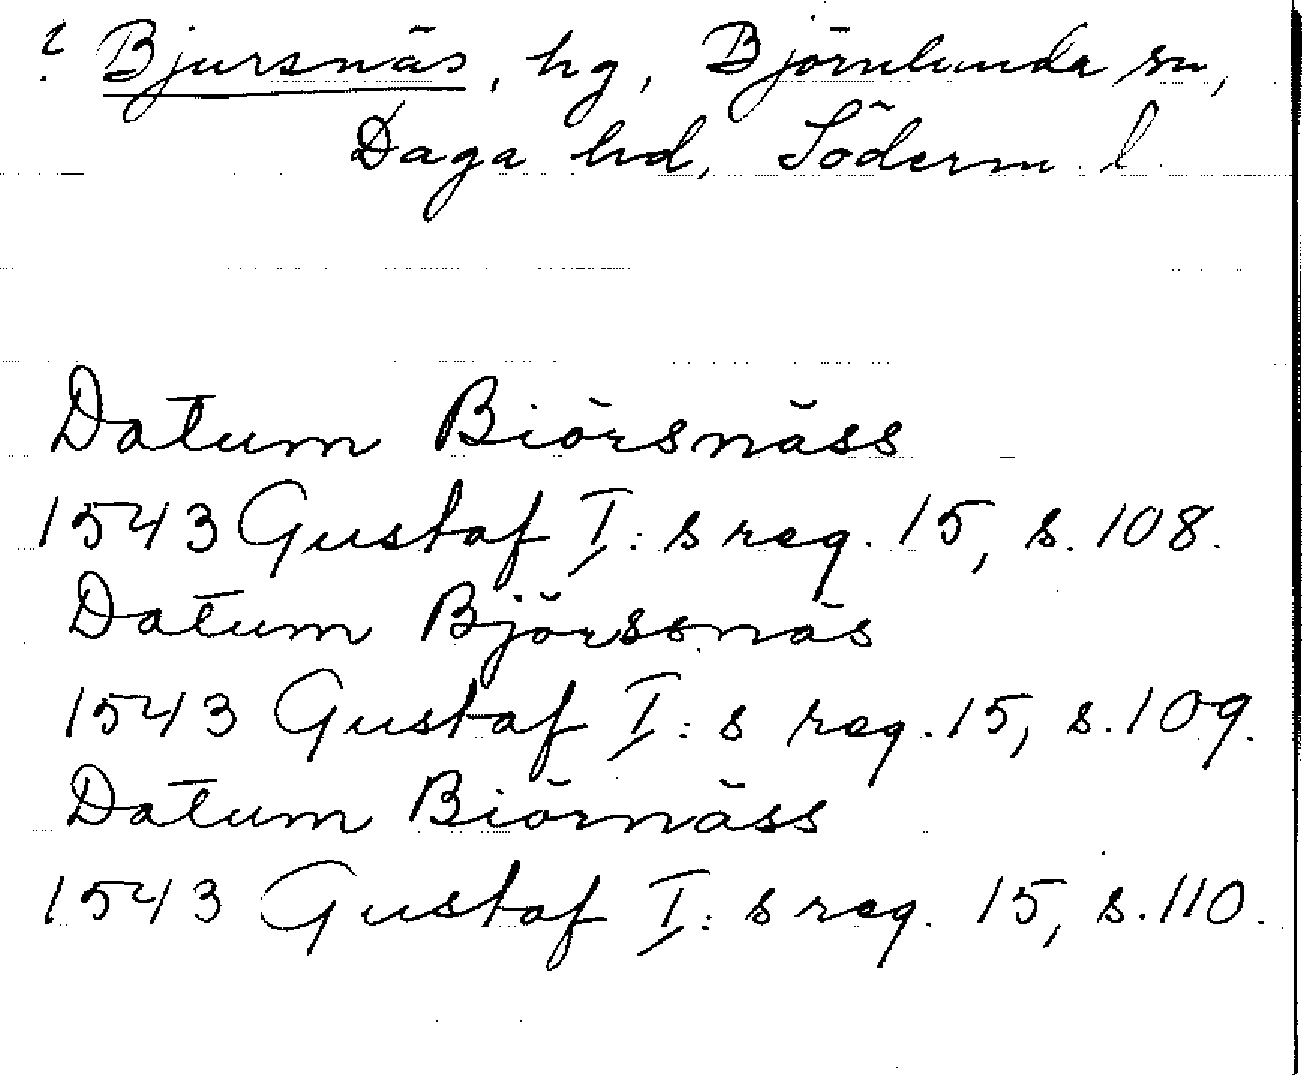 ? Bjursnäs, hg, Björnlunda sn,
Daga hd, Söderm. l.
Datum Biörsnäss
1543 Gustaf I:s reg. 15, s. 108.
Datum Björssnäs
1543 Gustaf I:s reg. 15, s. 109.
Datum Biörnäss
1543 Gustaf I:s reg. 15, s. 110.